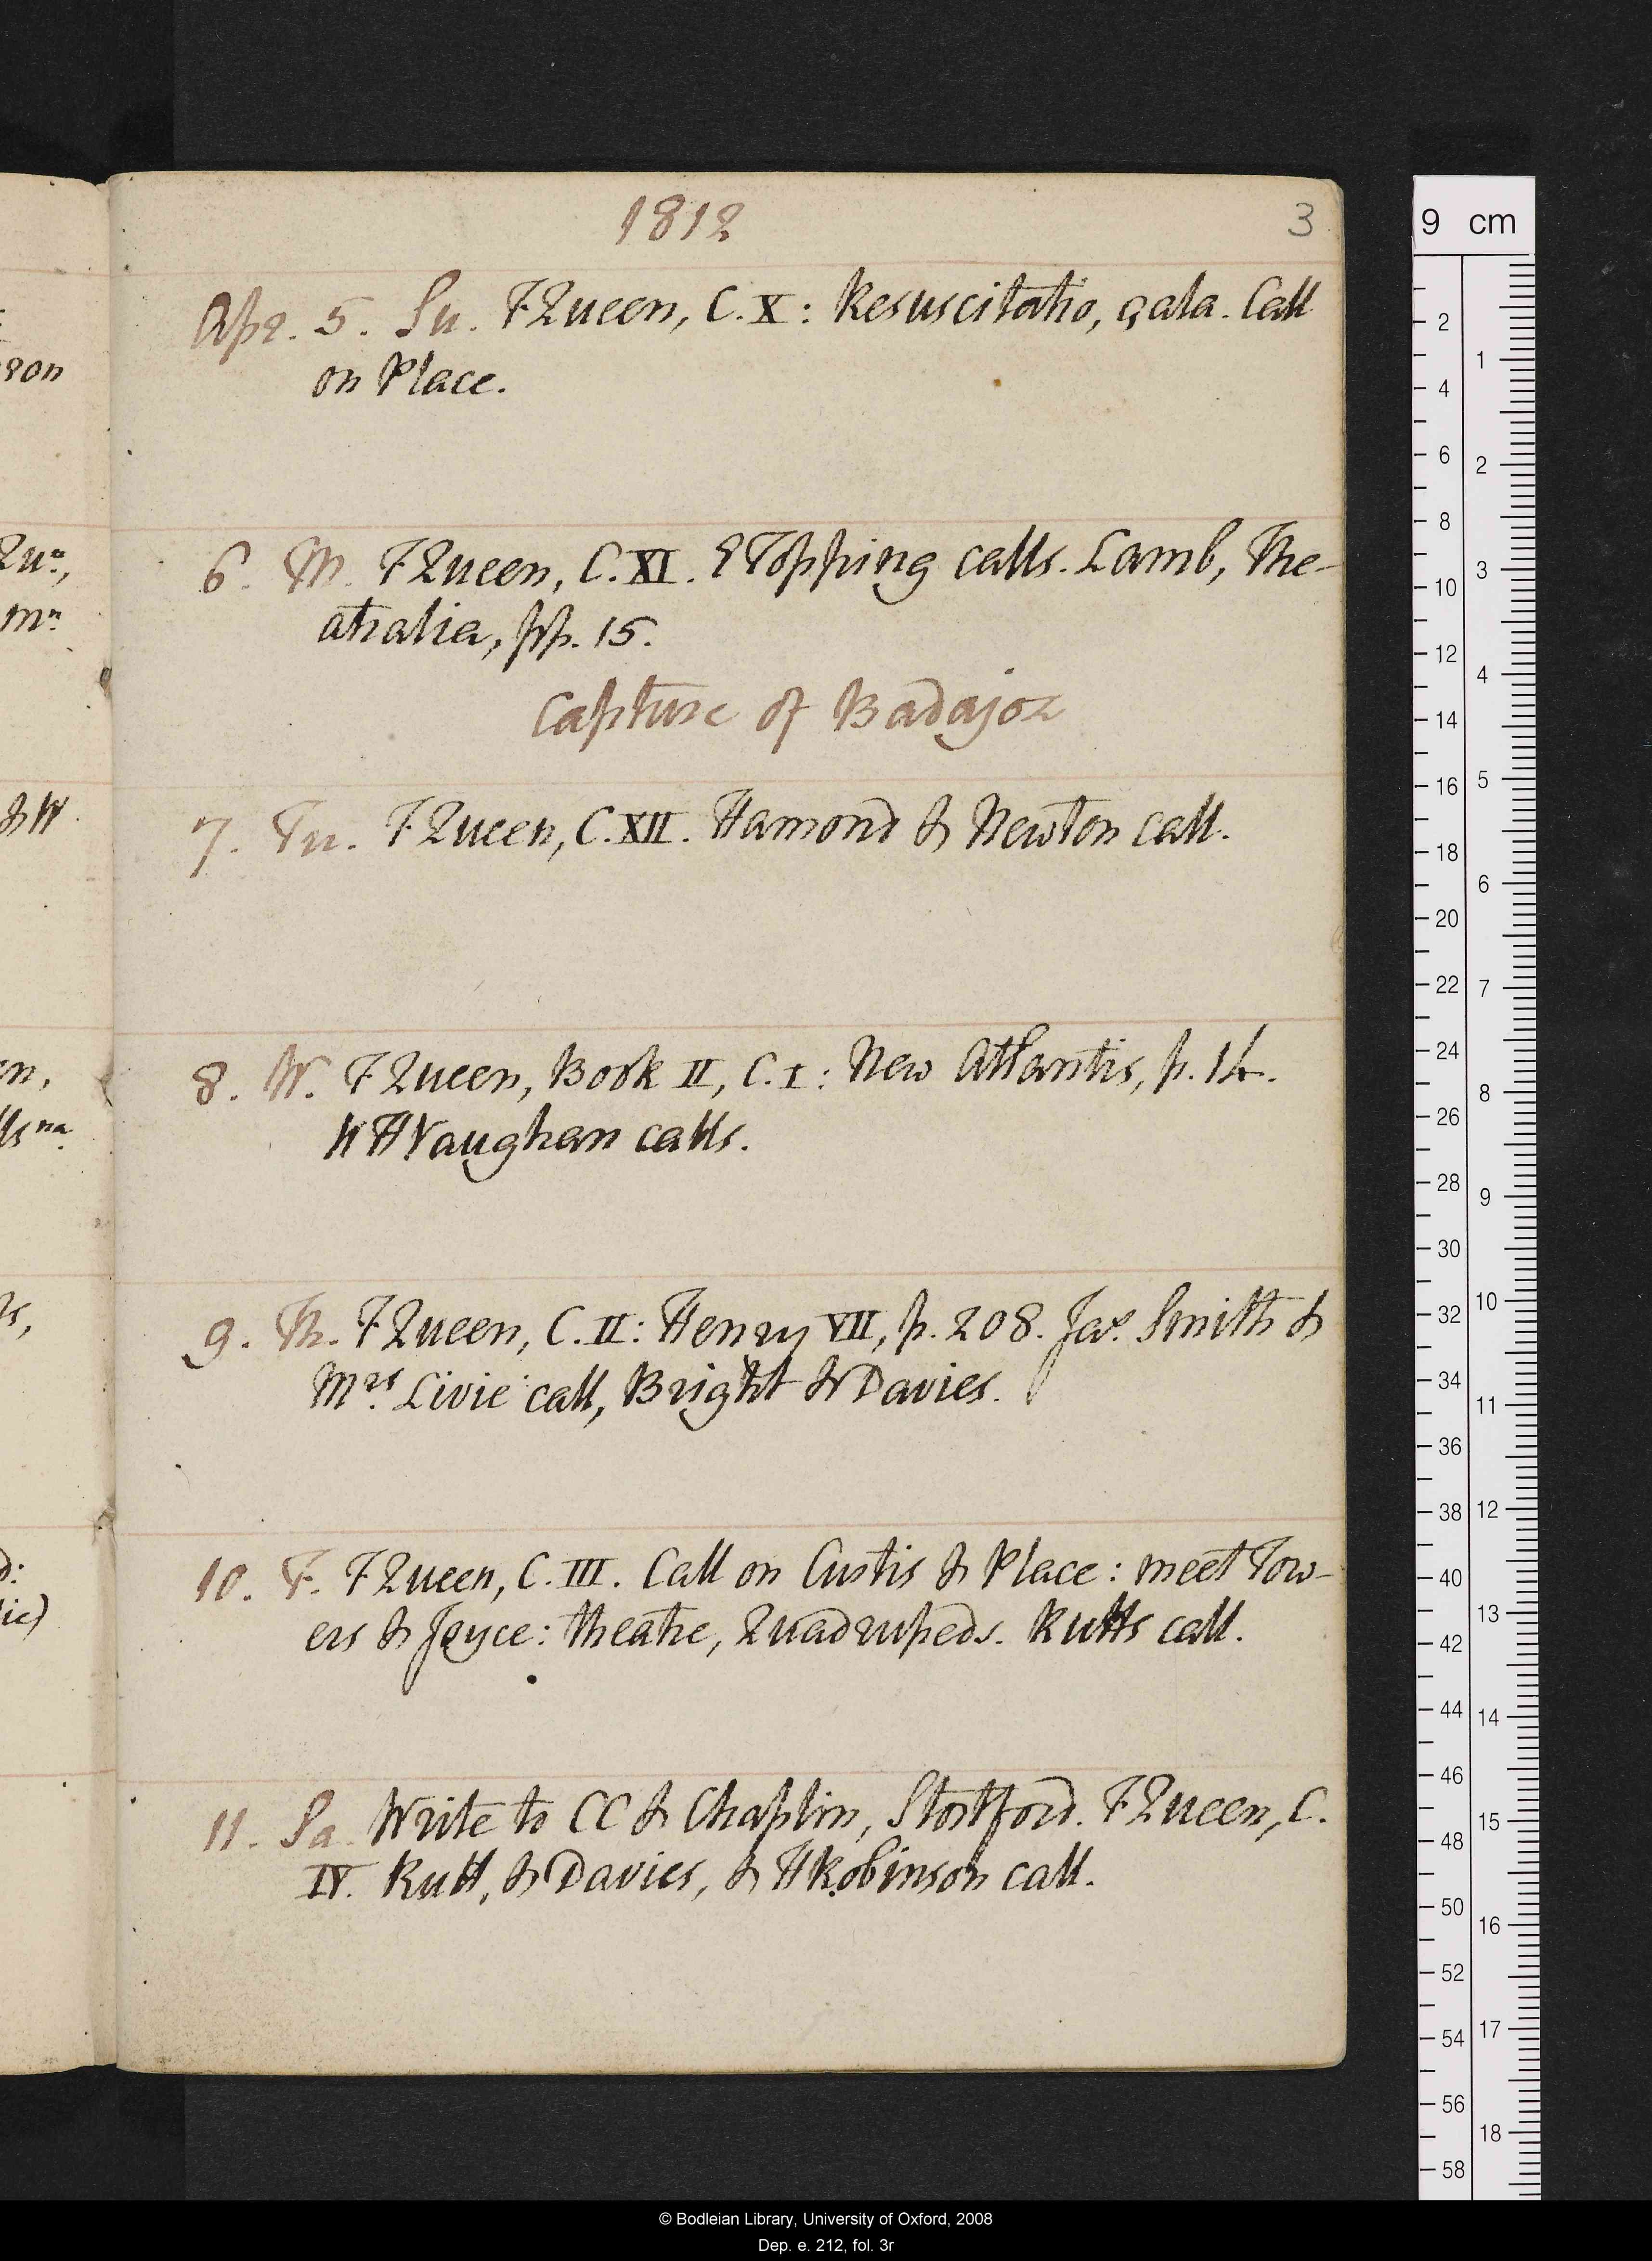 1812
3
Apr. 5. Su. FQueen, C. X: Resuscitatio, çala. Call
on Place.
6. M. FQueen, C. XI. ETopping calls. Lamb, The-
atralia, pp. 15.
Capture of Badajoz
7. Tu. FQueen, C. XII. Hamond & Newton call.
8. W. FQueen, Book II, C. I: New Atlantis, p. 14.
WHVaughan calls.
9. Th. FQueen, C. II: Henry VII, p. 208. Jas Smith &
Mrs Livie call, Bright & Davies.
10. F. FQueen, C. III. Call on Custis & Place: meet Tow-
ers & Joyce: theatre, Quadrupeds. Rutts call.
11. Sa. Write to CC & Chaplin, Stortford. FQueen, C.
IV. Rutt, & Davies, & HRobinson call.
ron
Qun,
mn
& W.
en,
lls na
ts,
d:
ie)
9 cm
2
4
6
8
10
12
14
16
18
20
22
24
26
28
30
32
34
36
38
40
42
44
46
48
50
52
54
56
58
1
2
3
4
5
6
7
8
9
10
11
12
13
14
15
16
17
18
© Bodleian Library, University of Oxford, 2008
Dep. e. 212, fol. 3r